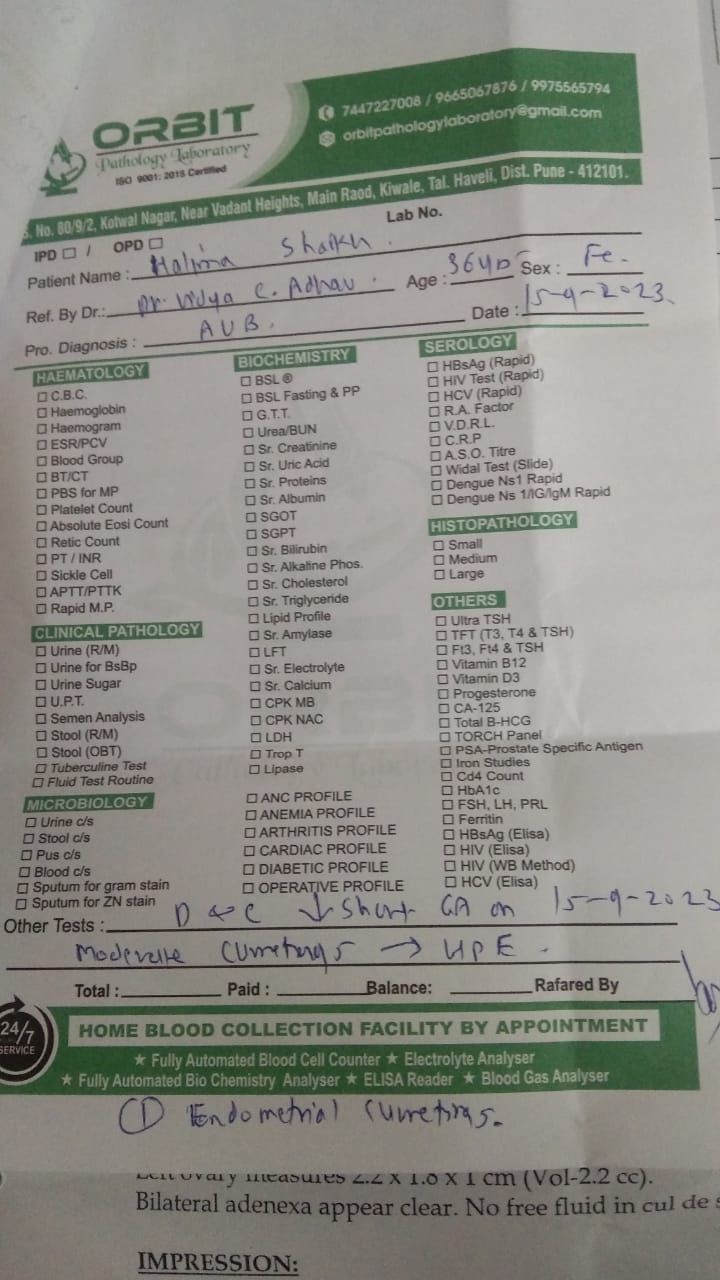 ORBIT
Pathology Laboratory
ISO 9001: 2015 Certified
7447227008 / 9665067876 / 9975565794
orbitpathologylaboratory@gmail.com
S. No. 80/9/2, Kotwal Nagar, Near Vadant Heights, Main Raod, Kiwale, Tal. Haveli, Dist. Pune - 412101.
IPD / OPD Lab No.
Patient Name : Halima Shaikh
Ref. By Dr.: Dr. Vidya C. Adhav Age : 36 Sex : Fe.
Pro. Diagnosis : AUB. Date : 15-9-2023
HAEMATOLOGY
C.B.C.
Haemoglobin
Haemogram
ESR/PCV
Blood Group
BT/CT
PBS for MP
Platelet Count
Absolute Eosi Count
Retic Count
PT / INR
Sickle Cell
APTT/PTTK
Rapid M.P.
CLINICAL PATHOLOGY
Urine (R/M)
Urine for BsBp
Urine Sugar
U.P.T.
Semen Analysis
Stool (R/M)
Stool (OBT)
Tuberculine Test
Fluid Test Routine
MICROBIOLOGY
Urine c/s
Stool c/s
Pus c/s
Blood c/s
Sputum for gram stain
Sputum for ZN stain
BIOCHEMISTRY
BSL ®
BSL Fasting & PP
G.T.T.
Urea/BUN
Sr. Creatinine
Sr. Uric Acid
Sr. Proteins
Sr. Albumin
SGOT
SGPT
Sr. Bilirubin
Sr. Alkaline Phos.
Sr. Cholesterol
Sr. Triglyceride
Lipid Profile
Sr. Amylase
LFT
Sr. Electrolyte
Sr. Calcium
CPK MB
CPK NAC
LDH
Trop T
Lipase
ANC PROFILE
ANEMIA PROFILE
ARTHRITIS PROFILE
CARDIAC PROFILE
DIABETIC PROFILE
OPERATIVE PROFILE
SEROLOGY
HBsAg (Rapid)
HIV Test (Rapid)
HCV (Rapid)
R.A. Factor
V.D.R.L.
C.R.P
A.S.O. Titre
Widal Test (Slide)
Dengue Ns1 Rapid
Dengue Ns 1/IG/IgM Rapid
HISTOPATHOLOGY
Small
Medium
Large
OTHERS
Ultra TSH
TFT (T3, T4 & TSH)
Ft3, Ft4 & TSH
Vitamin B12
Vitamin D3
Progesterone
CA-125
Total B-HCG
TORCH Panel
PSA-Prostate Specific Antigen
Iron Studies
Cd4 Count
HbA1c
FSH, LH, PRL
Ferritin
HBsAg (Elisa)
HIV (Elisa)
HIV (WB Method)
HCV (Elisa)
Other Tests : D & C ↓ Short GA on 15-9-2023
Moderate Curretings → HPE.
Total : Paid : Balance: Rafared By
24/7
SERVICE
HOME BLOOD COLLECTION FACILITY BY APPOINTMENT
★ Fully Automated Blood Cell Counter ★ Electrolyte Analyser
★ Fully Automated Bio Chemistry Analyser ★ ELISA Reader ★ Blood Gas Analyser
① Endometrial Curretings.
Left ovary measures 2.2 x 1.8 x 1 cm (Vol-2.2 cc).
Bilateral adenexa appear clear. No free fluid in cul de
IMPRESSION: